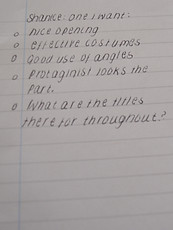 Shanice: one I want:
o nice opening
o effective costumes
o Good use of angles
o Protaginist looks the
Part.
o What are the titles
there for throughout?